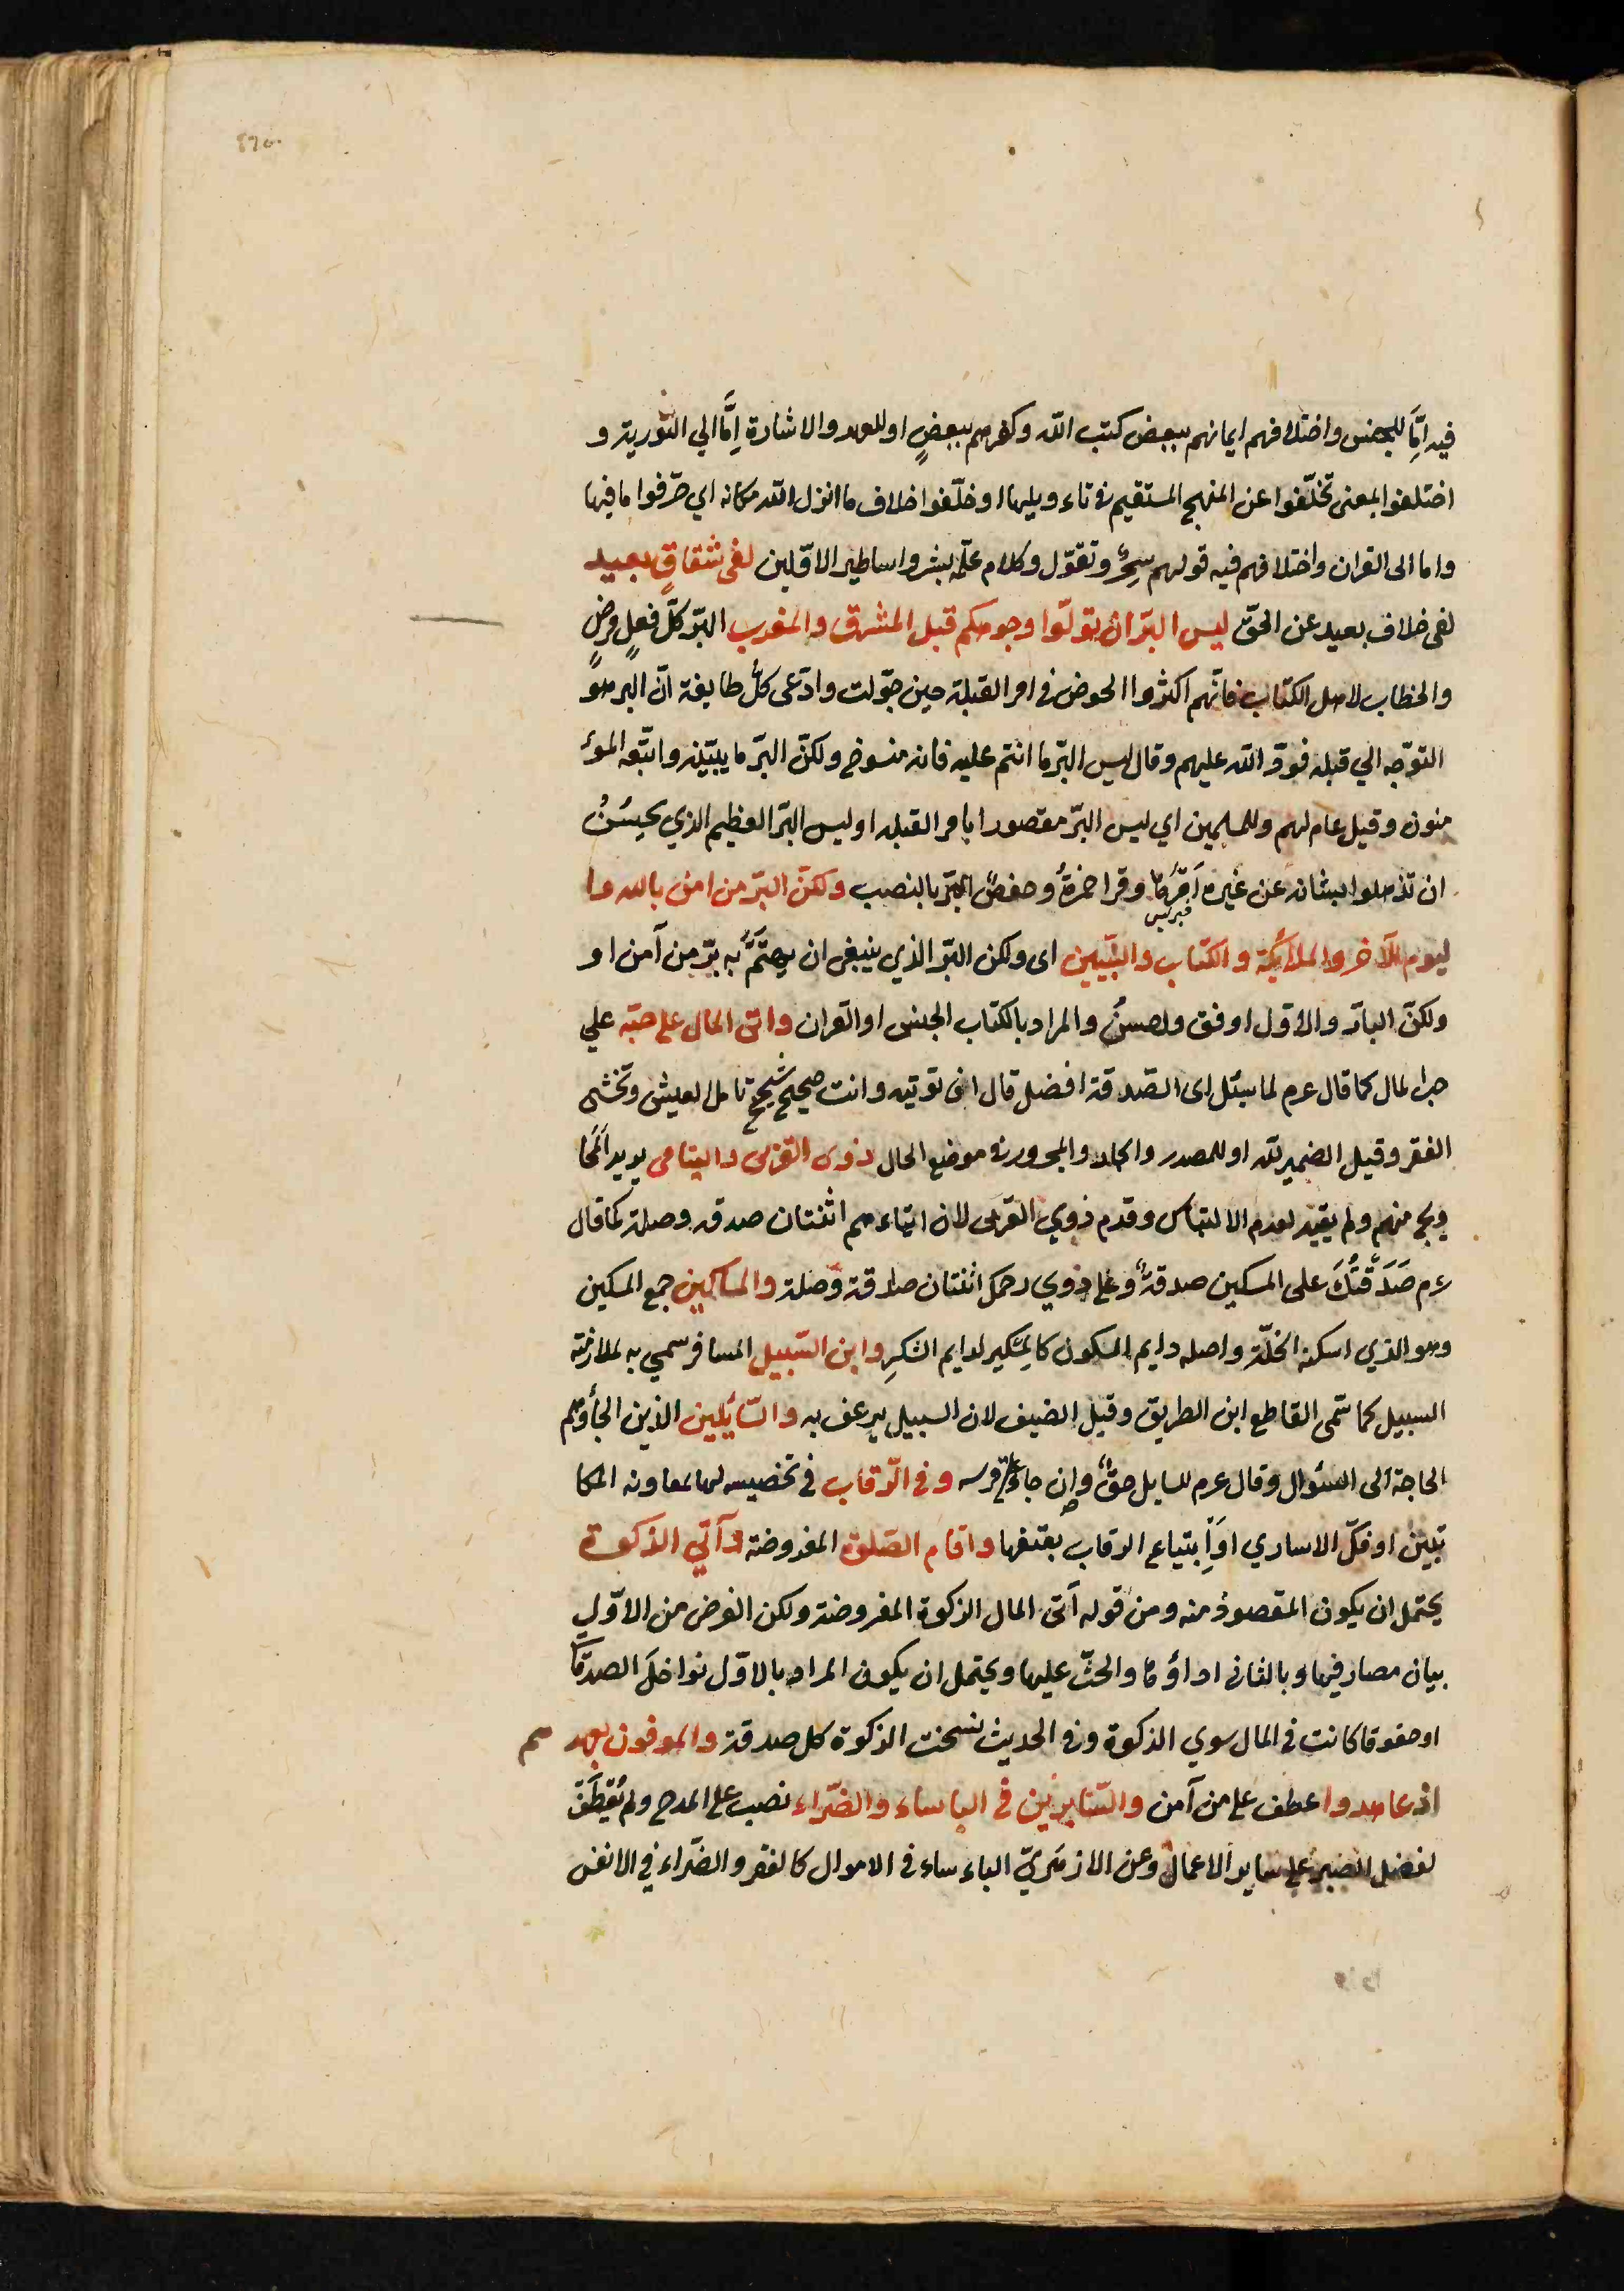 ٤٦٥
فيه اِمَّا للجنس واختلافهم ايمانهم ببعض كتب الله وكفرهم ببعضٍ او للعهد والاشارة اِمَّا الي التّورية و
اختلفوا بمعنى تخلّفوا عن المنهج المستقيم فى تاءويلها او خلّفوا خلاف ما انزل الله مكانه اي حرّفوا ما فيها
واما الى القران واختلافهم فيه قولهم سِحرٌ وتقوّل وكلام علّمه بشر واساطير الاوّلين لفى شقاقٍ بعيد
لفى خلاف بعيد عن الحقّ ليس البرّ ان تولّوا وجوهكم قبل المشرق والمغرب البرّ كلّ فعلٍ مرضٍ
والخطاب لاهل الكتاب فانّهم اكثروا الخوض فى امر القبلة حين حوّلت وادّعى كلُّ طايفة انّ البر هو
التوجّه الي قبلته فردّ الله عليهم وقال ليس البرّ ما انتم عليه فانه منسوخ ولكنّ البرّ ما يبيّنه واتّبعه المؤ
منون وقيل عام لهم وللمسلمين اي ليس البرّ مقصورا بامر القبله او ليس البرّ العظيم الذي يحسُنُ
ان تذهلوا بشانه عن غيره اَمرُها وقرا حمزةُ وحفصٌ البرّ بالنصب ولكنّ البرّ من امن بالله وا
ليوم الآخر والملائكة والكتاب والنبّيين اى ولكن البرّ الذي ينبغى ان يهتَمَّ به برّ من آمن او
ولكنّ البارّ والاوّل اوفق واحسنُ والمراد بالكتاب الجنس او القران واتى المال على حبّه علي
حب المال كما قال عرم لما سئل اى الصّدقة افضل قال ان توتيه وانت صحيح شحيح تامل العيش وتخشى
الفقر وقيل الضمير لله او للمصدر والجار والمجرور فى موضع الحال ذوى القربى واليتامى يريد المَحا
ويج منهم ولم يقيد لعدم الالتباس وقدم ذوي القربى لان ايتاءهم اثنتان صدقه وصلة كما قال
عرم صَدَقتُكَ على المسكين صدقةٌ وعلى ذوي رحمك اثنتان صدقة وصلة والمساكين جمع المسكين
وهو الذي اسكنه الخلّة واصله دايم السكون كالمِسكير لدايم السُّكرِ وابن السّبيل المسافر سمي به لملازمته
السبيل كما سمّى القاطع ابن الطريق وقيل الضيف لان السبيل يرعف به والسّائلين الذين الجأوهم
الحاجة الى السئوال وقال عرم للسايل حقٌّ وان جاء على فرسه وفى الرّقاب في تخصيسه لها بمعاونه المكا
تبين او فكّ الاساري او اِبتياع الرقاب بعتقها واقام الصّلوة المفروضة وآتي الزكوة
يحتمل ان يكون المقصودُ منه ومن قوله آتى المال الزكوة المفروضة ولكن الغرض من الاوّل
بيان مصارفيها وبالثانى اداؤها والحثّ عليها ويحتمل ان يكون المراد بالاوّل نوافل الصدقا
او حقوقا كانت في المال سوي الزكوة وفى الحديث نسخت الزكوة كل صدقة والموفون بعهد هم
اذ عاهدوا عطف على من آمن والصّابرين في الباساء والضّراء نصب على المدح ولم يُعطَف
لفضل الصبر على ساير الاعمال وعن الازهَريّ الباءساء فى الاموال كالفقر والضّراء في الانفس